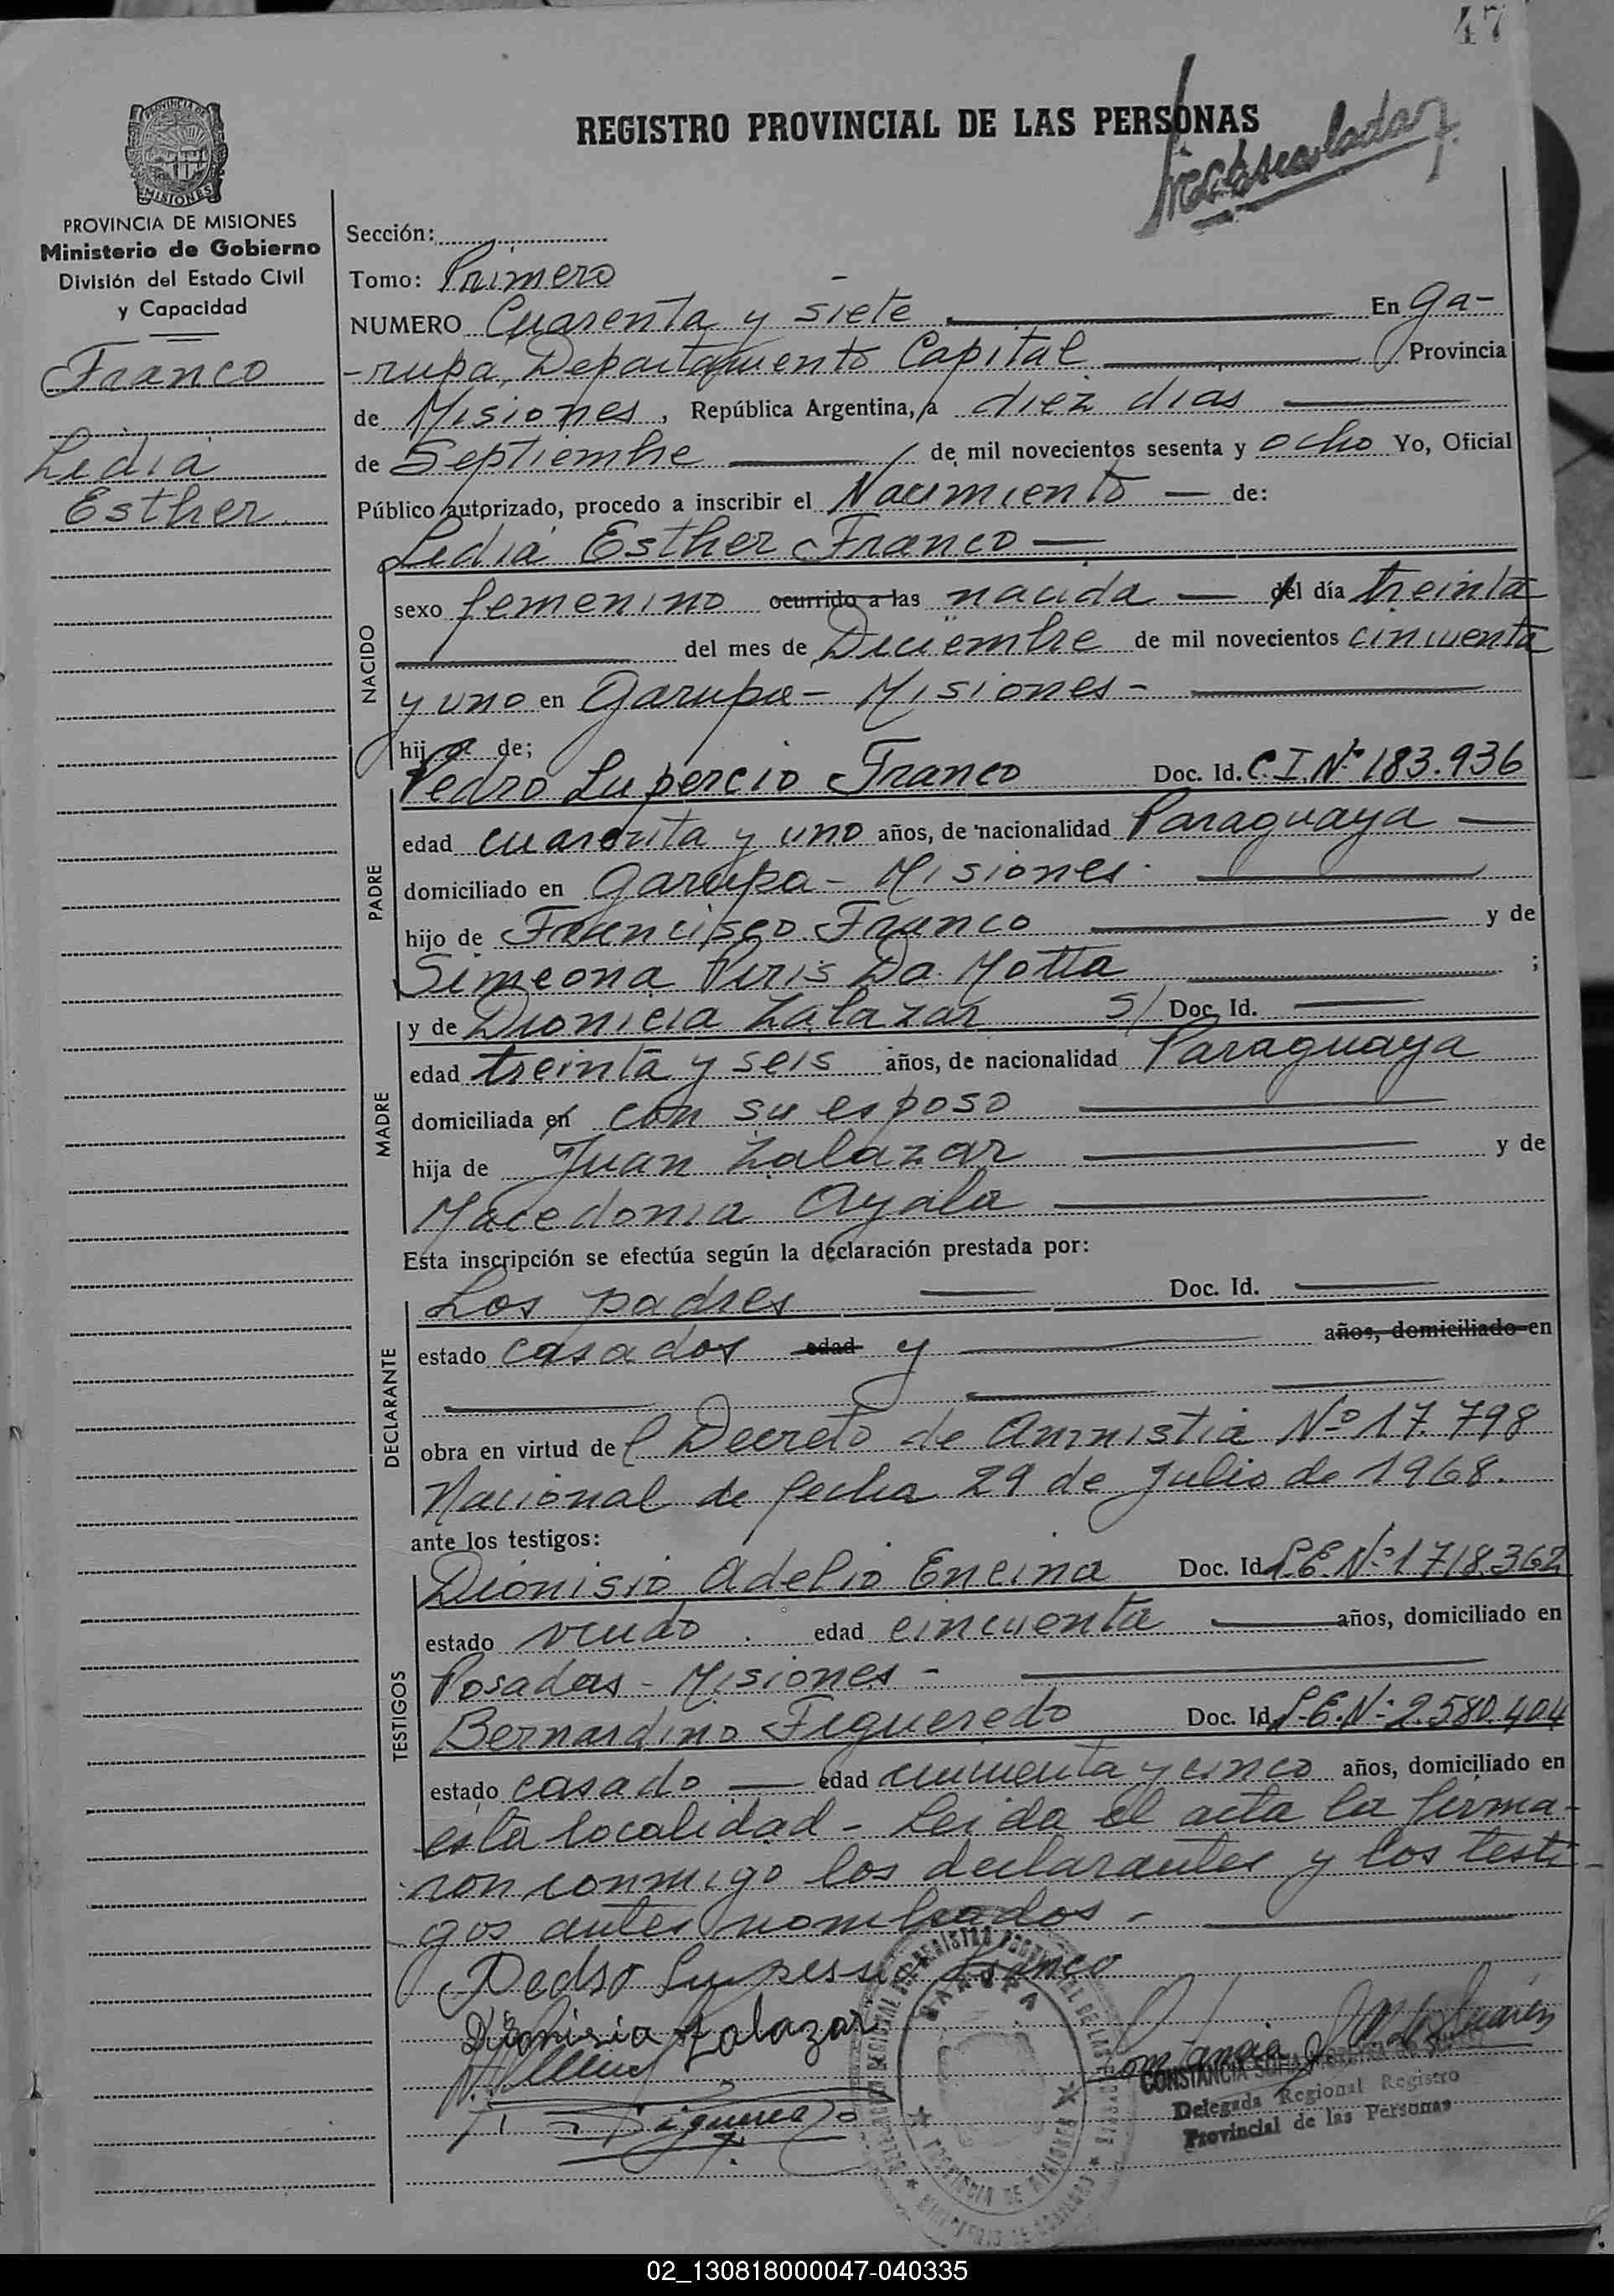 47
REGISTRO PROVINCIAL DE LAS PERSONAS
PROVINCIA DE MISIONES
Ministerio de Gobierno
División del Estado Civil
y Capacidad
Franco
Ledia
Esther
Sección:
Tomo: Primero
NUMERO Cuarenta y siete En Ga-
-rupa, Departamento Capital Provincia
de Misiones, República Argentina, a diez dias
de Septiembre de mil novecientos sesenta y ocho Yo, Oficial
Público autorizado, procedo a inscribir el Nacimiento de:
Ledia Esther Franco
NACIDO
sexo femenino ocurrido a las nacida el día treinta
del mes de Diciembre de mil novecientos cincuenta
y uno en Garupa - Misiones -
hija de;
PADRE
Pedro Lupercio Franco Doc. Id. C.I Nº 183.936
edad cuarenta y uno años, de nacionalidad Paraguaya
domiciliado en Garupa - Misiones.
hijo de Francisco Franco y de
Simeona Piris Da Motta ;
MADRE
y de Dionicia Zalazar S/ Doc. Id.
edad treinta y seis años, de nacionalidad Paraguaya
domiciliada en con su esposo
hija de Juan Zalazar y de
Macedonia Ayala
Esta inscripción se efectúa según la declaración prestada por:
DECLARANTE
Los padres Doc. Id.
estado casados edad y años, domiciliado en
obra en virtud del Decreto de Amnistia Nº 17.798
Nacional de fecha 29 de Julio de 1968.
ante los testigos:
TESTIGOS
Dionisio Adelio Encina Doc. Id L.E. Nº 1718362
estado viudo edad cincuenta años, domiciliado en
Posadas - Misiones -
Bernardino Figueredo Doc. Id L.E. Nº 2.580.404
estado casado edad cincuenta y cinco años, domiciliado en
esta localidad - Leida el acta la firma-
ron conmigo los declarantes y los testi-
gos antes nombrados -
Pedro Lupersio Franco
Dionisia Zalazar
GARUPA
PROVINCIA DE MISIONES
Delegada Regional Registro
Provincial de las Personas
02_130818000047-040335